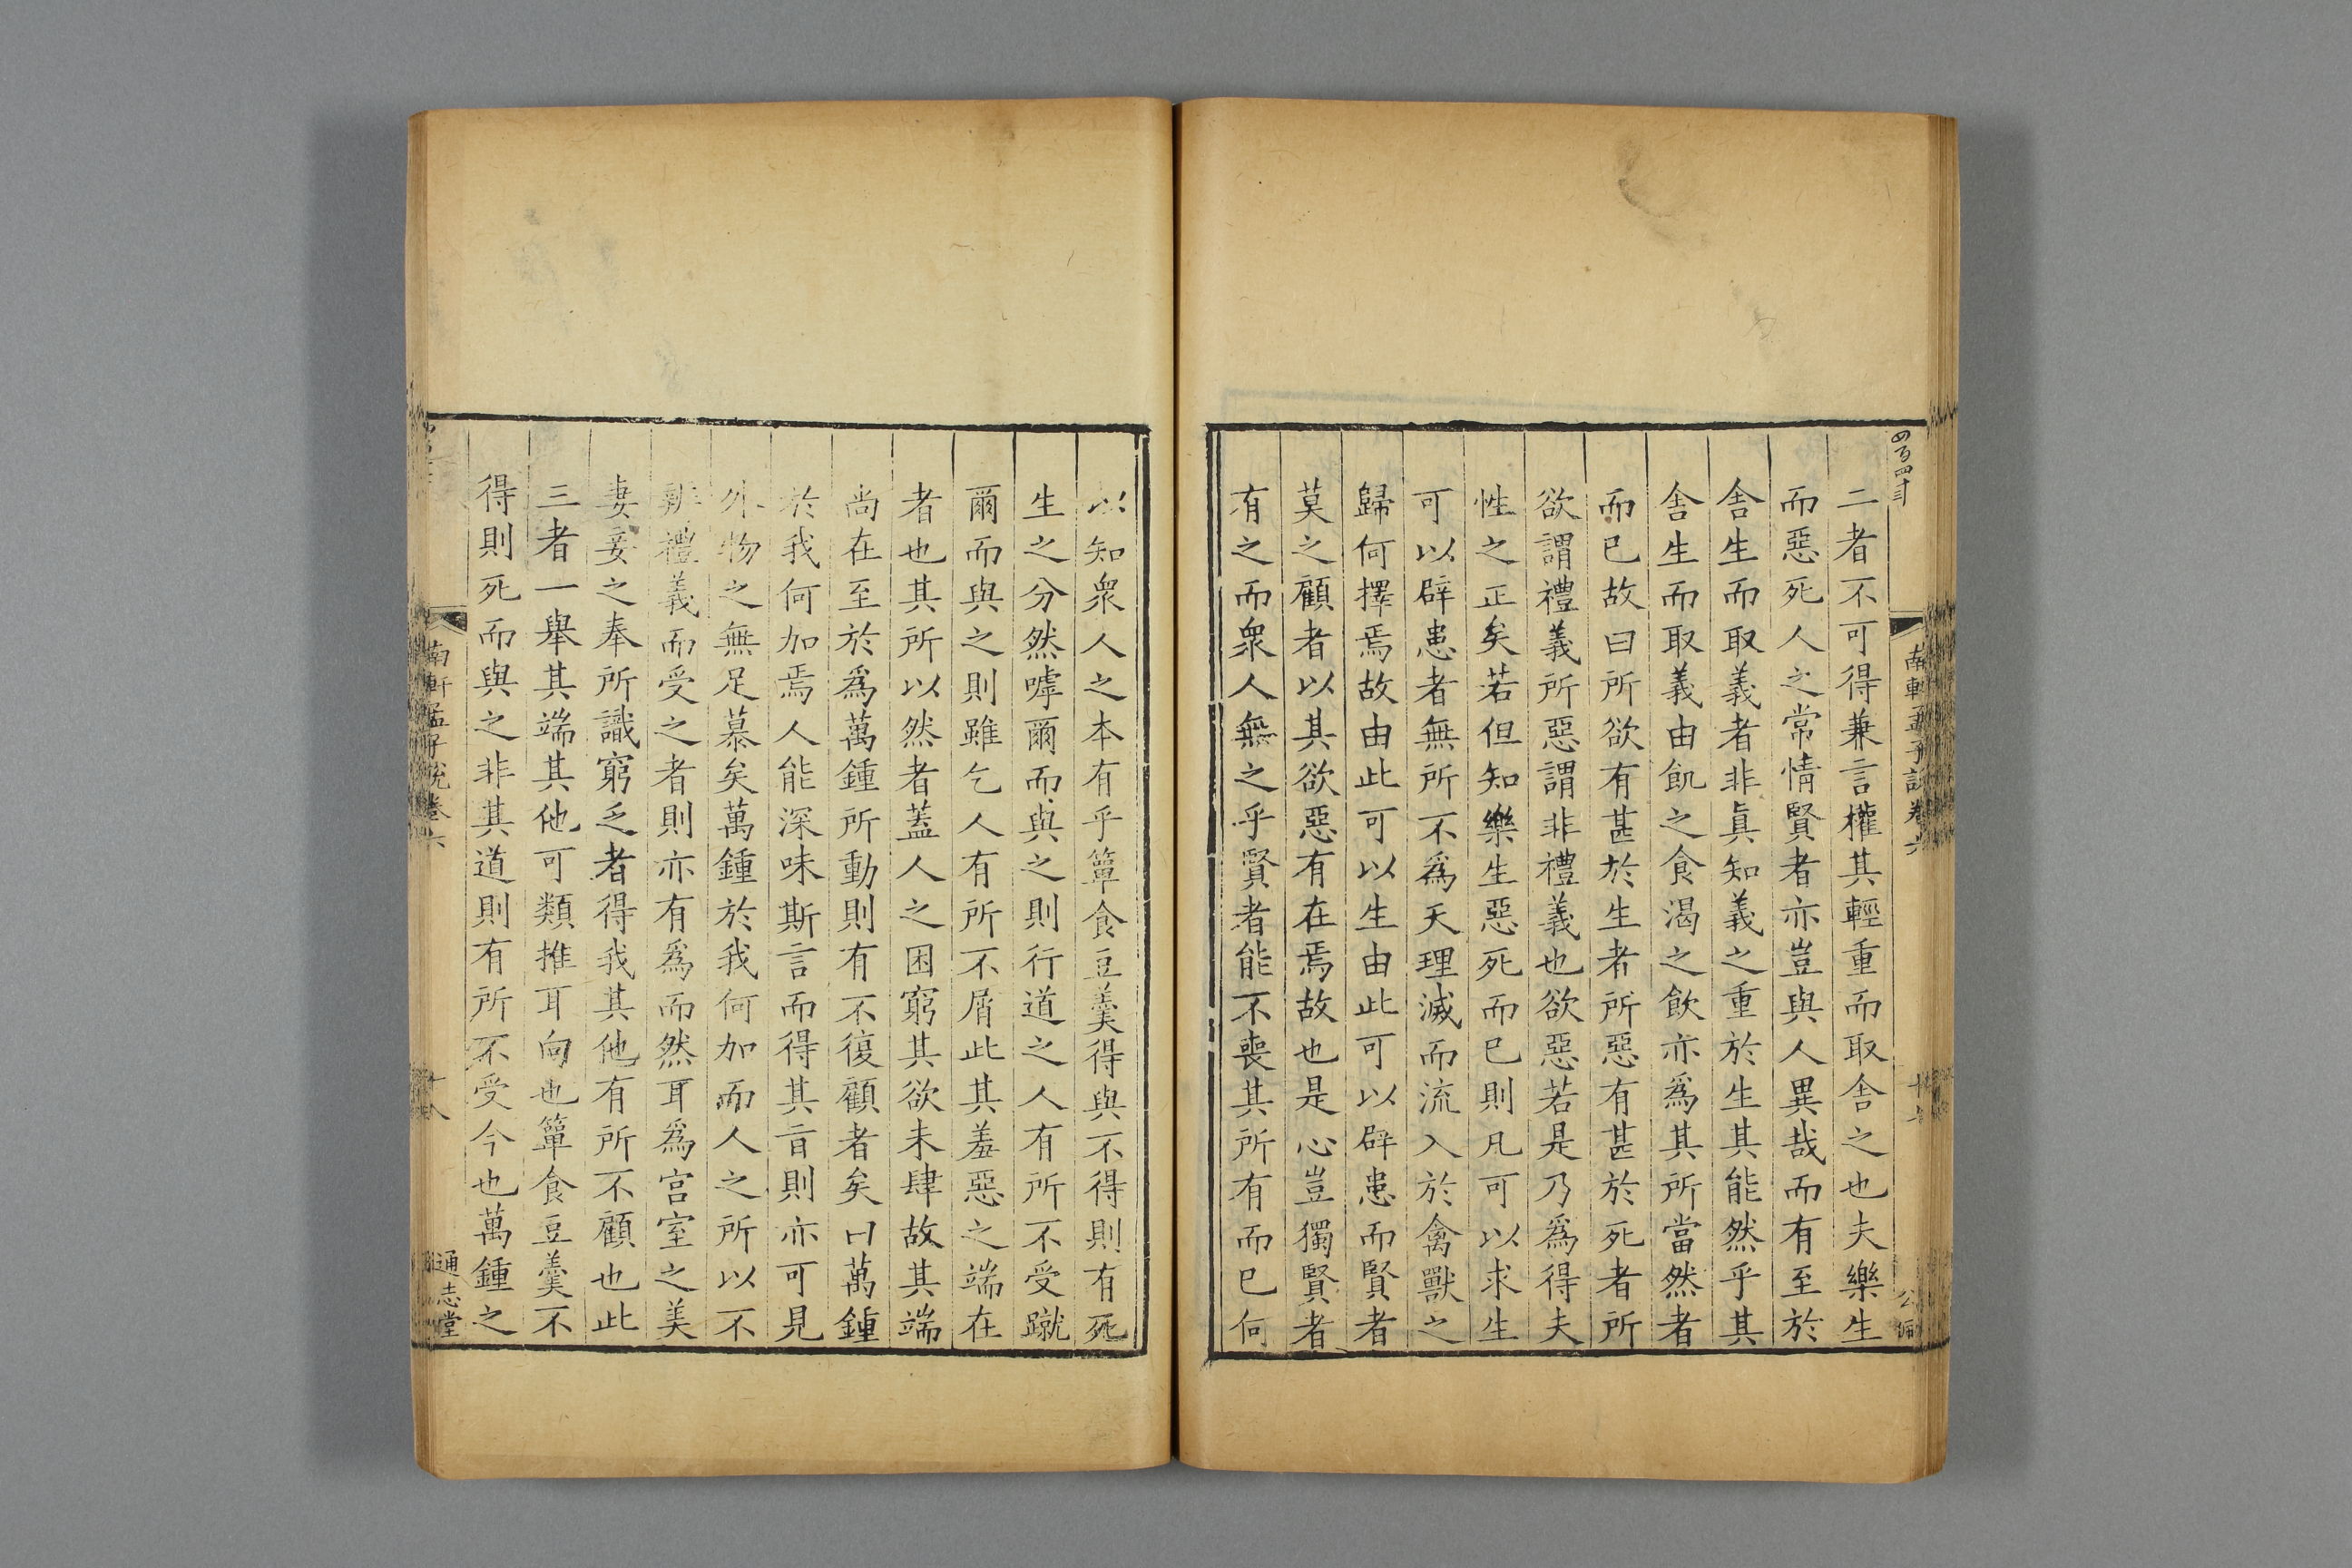 四百四十三
南軒孟子說卷六
二者不可得兼言權其輕重而取舍之也夫樂生
而惡死人之常情賢者亦豈與人異哉而有至於
舍生而取義者非眞知義之重於生其能然乎其
舍生而取義由飢之食渴之飲亦爲其所當然者
而已故曰所欲有甚於生者所惡有甚於死者所
欲謂禮義所惡謂非禮義也欲惡若是乃爲得夫
性之正矣若但知樂生惡死而已則凡可以求生
可以辟患者無所不爲天理滅而流入於禽獸之
歸何擇焉故由此可以生由此可以辟患而賢者
莫之顧者以其欲惡有在焉故也是心豈獨賢者
有之而衆人無之乎賢者能不喪其所有而已何
以知衆人之本有乎簞食豆羹得與不得則有死
生之分然嘑爾而與之則行道之人有所不受蹴
爾而與之則雖乞人有所不屑此其羞惡之端在
者也其所以然者蓋人之困窮其欲未肆故其端
尚在至於爲萬鍾所動則有不復顧者矣曰萬鍾
於我何加焉人能深味斯言而得其旨則亦可見
外物之無足慕矣萬鍾於我何加而人之所以不
辨禮義而受之者則亦有爲而然耳爲宮室之美
妻妾之奉所識窮乏者得我其他有所不顧也此
三者一舉其端其他可類推耳向也簞食豆羹不
得則死而與之非其道則有所不受今也萬鍾之
南軒孟子說卷六
十八
通志堂